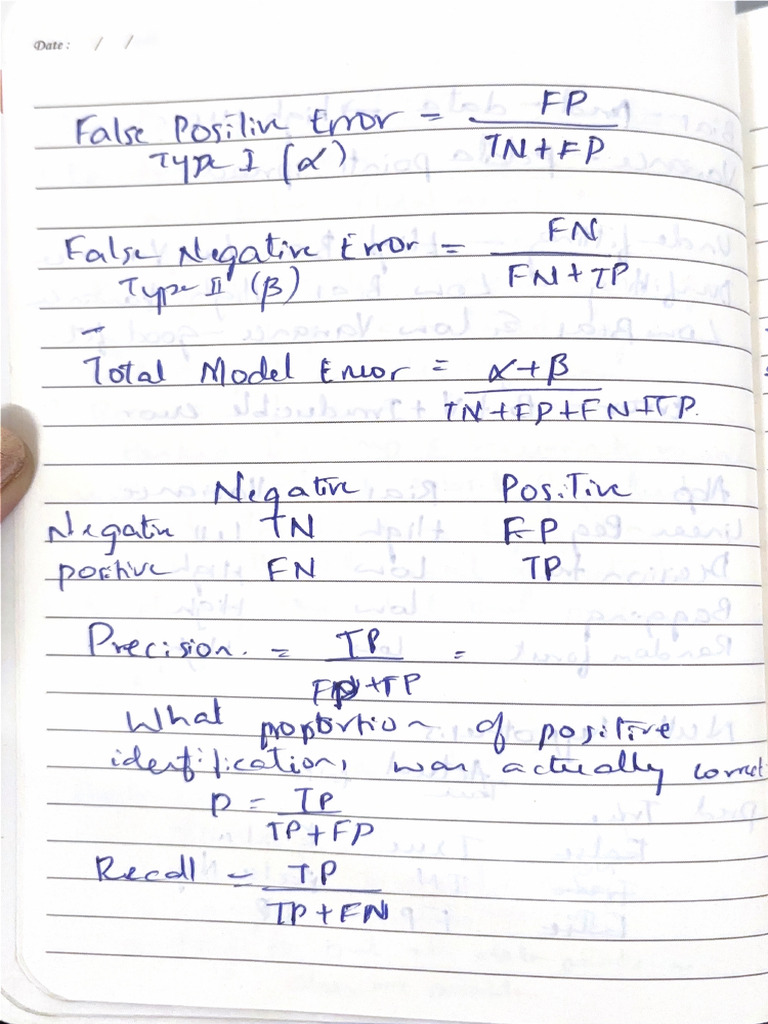 Date : / /
False Positive Error = FP
Type I (α) TN + FP
False Negative Error = FN
Type II (β) FN + TP
Total Model Error = α + β
TN + FP + FN + TP
Negative Positive
Negative TN FP
positive FN TP
Precision. = TP =
FP + TP
What proportion of positive
identification, was actually correct
P = TP
TP + FP
Recall = TP
TP + FN